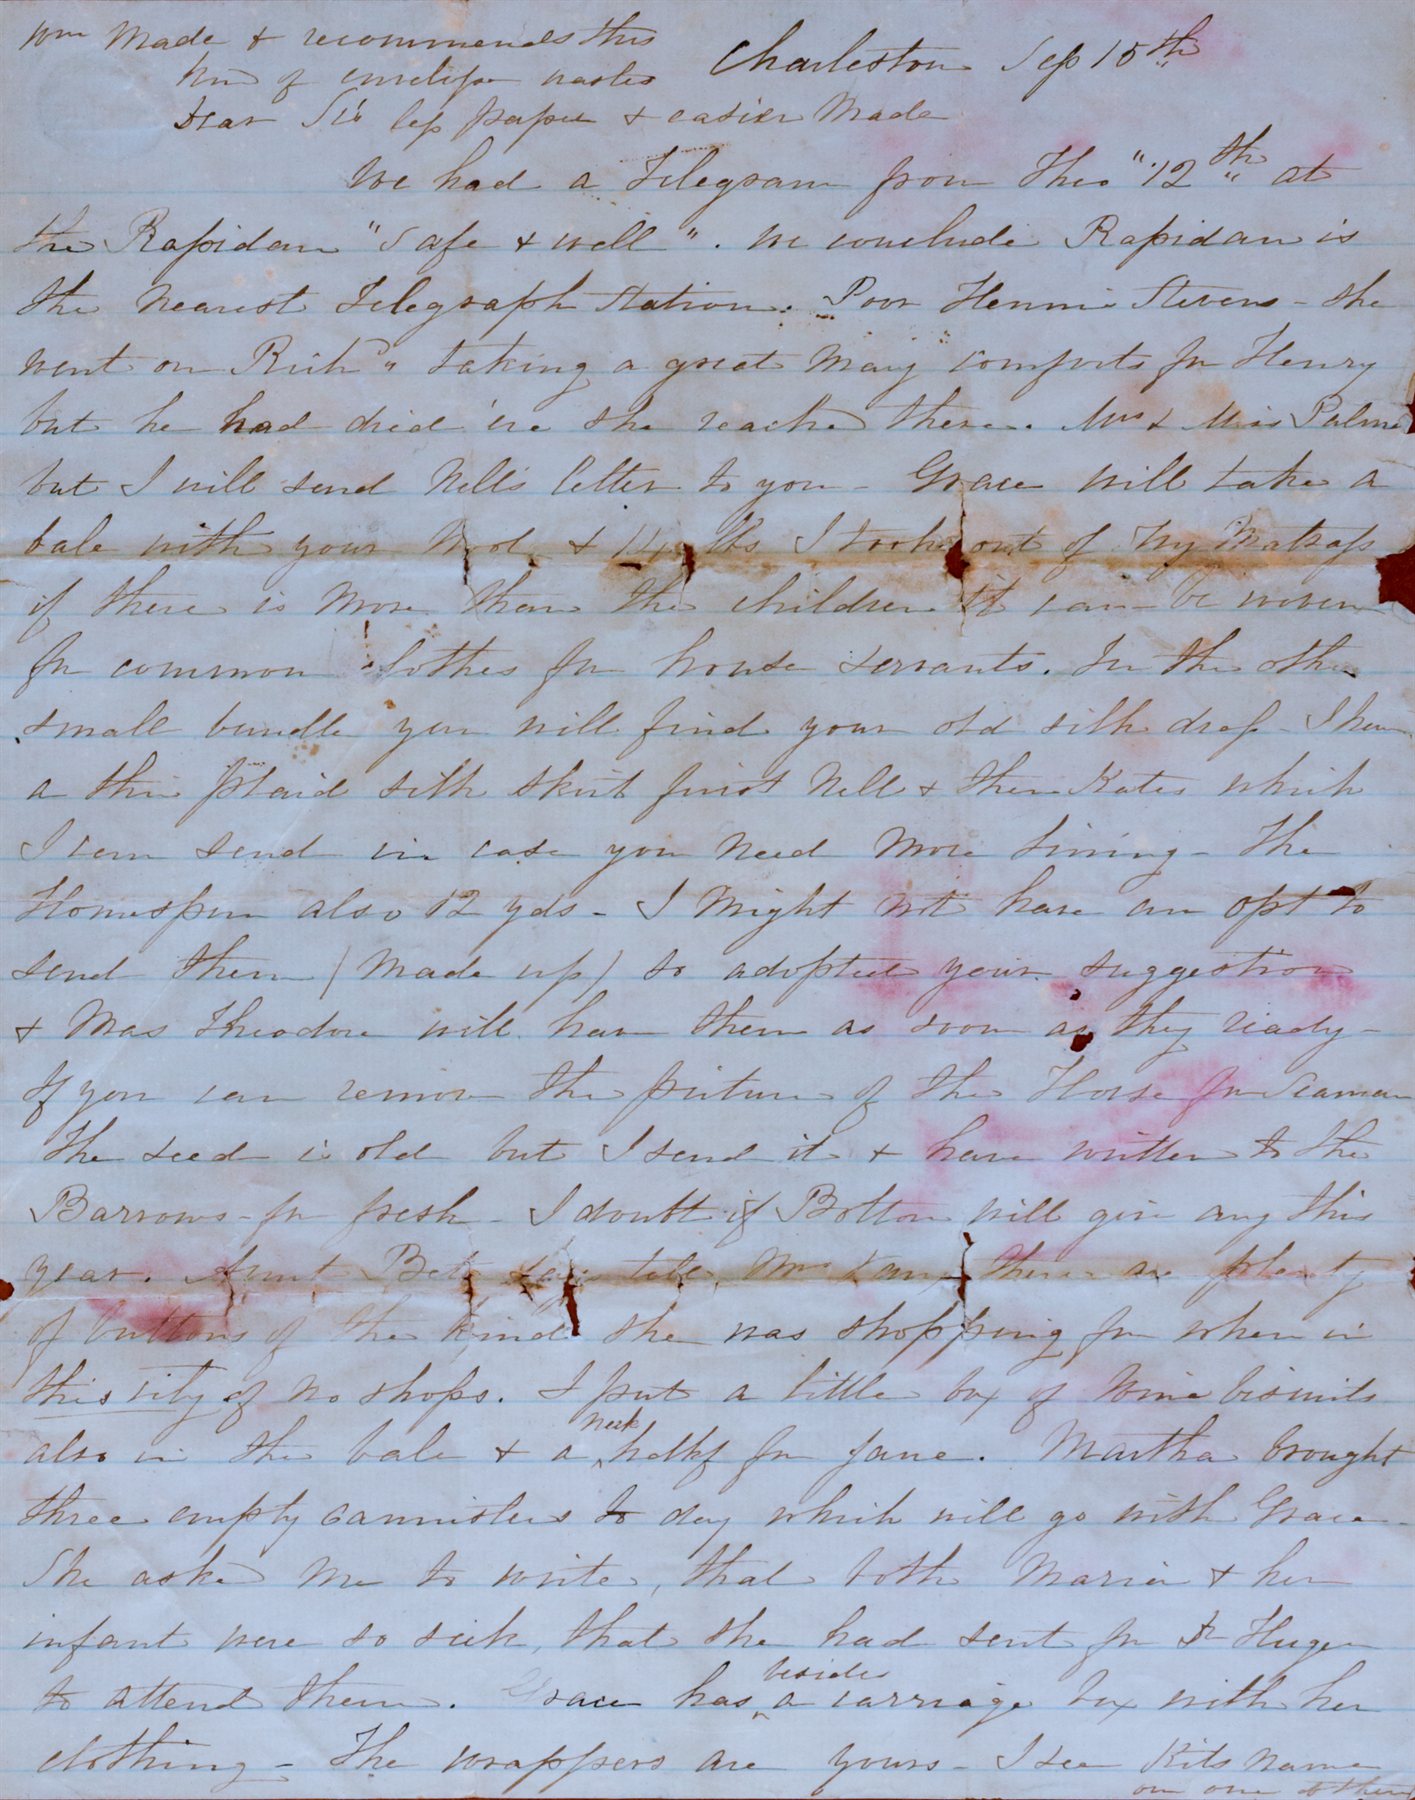 Wm Made & recommends this
kind of envelope wastes
less paper & easier Made
Charleston Sep 15th
Dear Sis
We had a Telegram from Theo "12th" at
the Rapidan "Safe & well". We conclude Rapidan is
the nearest Telegraph Station. Poor Hennie Stevens - she
went on Rich'd taking a great many comforts for Henry
but he had died 'ere she reached there. Mrs & Miss Palmer
but I will send Nell's letter to you - Grace will take a
bale with your Wool & 14 lbs I took out of my Matrass
if there is more than the children it can be woven
for common clothes for house servants. In the other
small bundle you will find your old silk dress - I have
a thin plaid silk skirt first Nell & then Kates which
I can send in case you need more lining - The
Homespun also 12 yds - I Might not have an opt to
send them (made up) so adopted your suggestion
& Mas Theodore will have them as soon as they ready -
If you can remove the picture of the Horse for Seaman
The seed is old but I send it & have written to the
Barrows - for fresh - I doubt if Bolton will give any this
year. Aunt Bet says tell Mrs there are plenty
of buttons of the kind she was shopping for when in
this city of no shops. I put a little box of Wine biscuits
also in the bale & a neck hdkf for Jane. Martha brought
three empty cannisters to day which will go with Grace -
She asked me to write, that both Maria & her
infant were so sick, that she had sent for Dr Huger
to attend them. Grace has besides a carriage box with her
clothing - The wrappers are yours - I see Kits name
on one of them